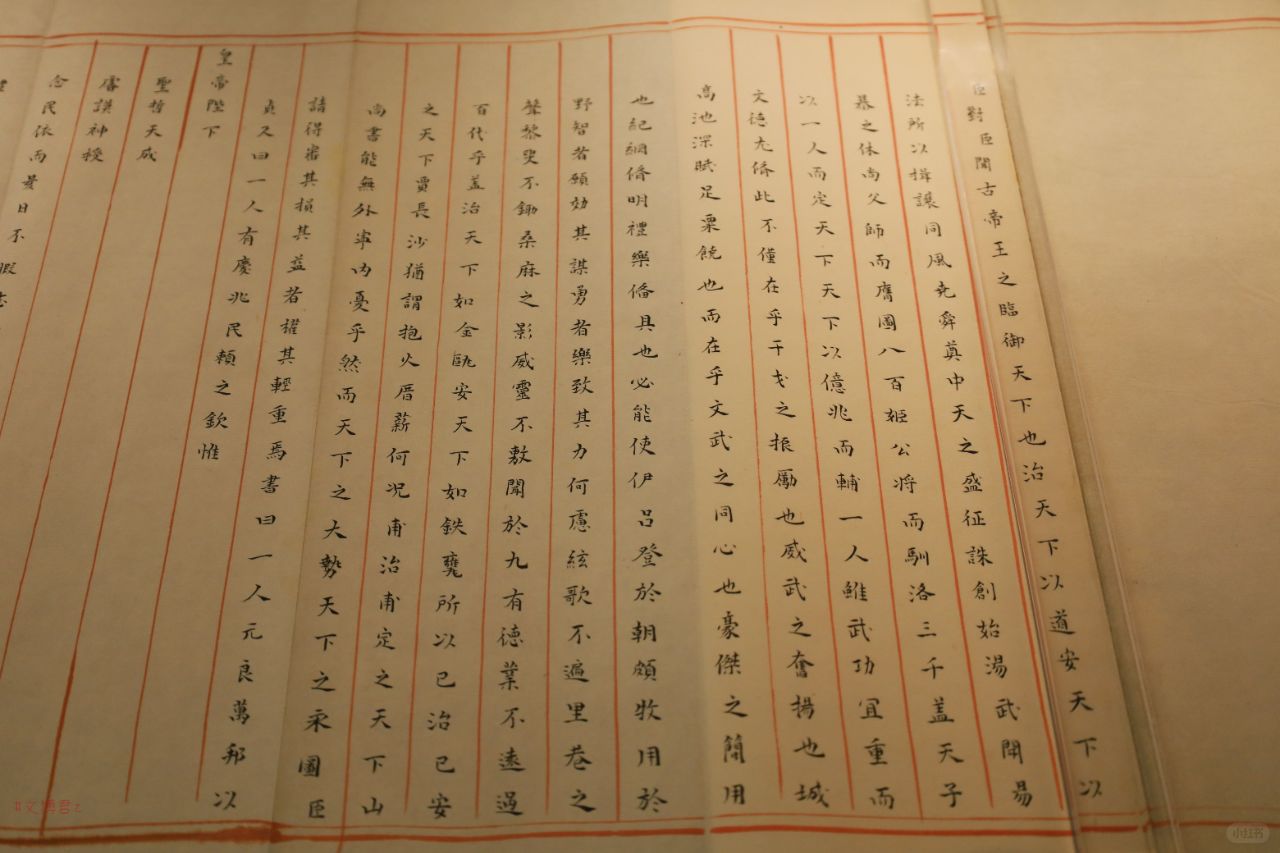 臣對臣聞古帝王之臨御天下也治天下以道安天下以
法所以揖讓同風堯舜奠中天之盛征誅創始湯武開易
暴之休尚父師而膺圖八百姬公將而馴洛三千蓋天子
以一人而定天下天下以億兆而輔一人雖武功宜重而
文德尤脩此不僅在乎干戈之振勵也威武之奮揚也城
高池深賦足粟饒也而在乎文武之同心也豪傑之簡用
也紀綱脩明禮樂俻具也必能使伊呂登於朝頗牧用於
野智者願効其謀勇者樂致其力何慮絃歌不遍里巷之
聲黎叟不鋤桑麻之影威靈不敷聞於九有德業不遠過
百代乎蓋治天下如金甌安天下如鉄甕所以已治已安
之天下賈長沙猶謂抱火厝薪何况甫治甫定之天下山
尚書能無外寧內憂乎然而天下之大勢天下之永圖臣
請得審其損其益者權其輕重焉書曰一人元良萬邦以
貞又曰一人有慶兆民賴之欽惟
皇帝陛下
聖哲天成
睿謨神授
念民依而晷日不暇
#文博君z
小红书